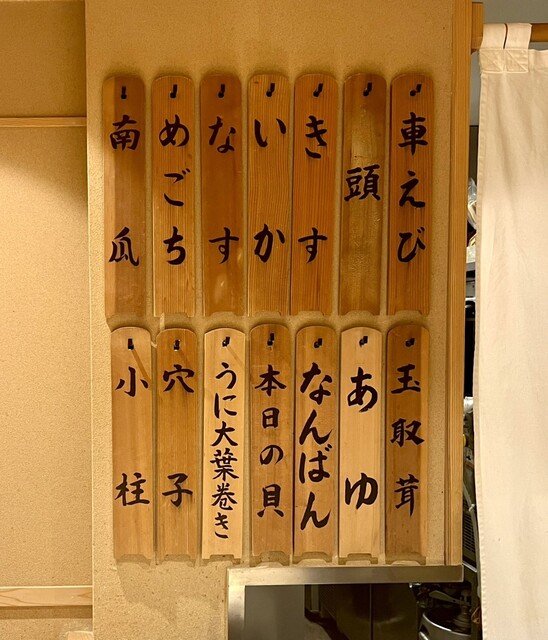 車えび
頭
きす
いか
なす
めごち
南瓜
玉取茸
あゆ
なんばん
本日の貝
うに大葉巻き
穴子
小柱